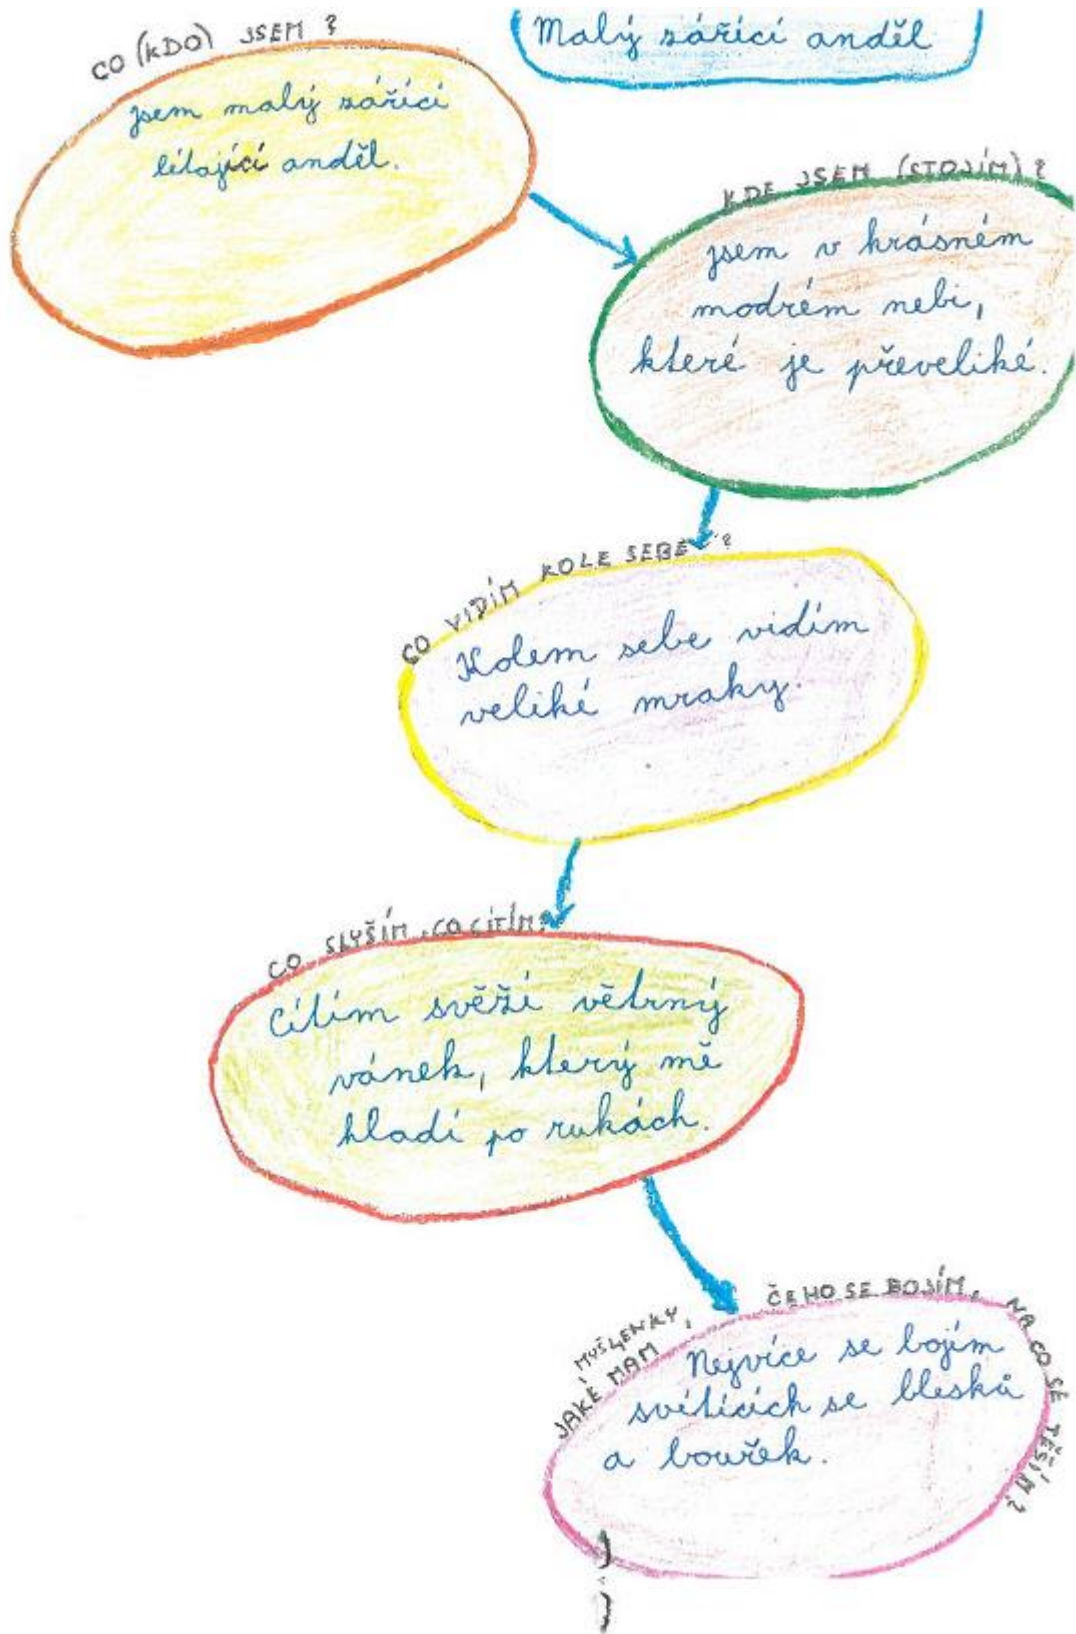 Malý zářící anděl
CO (KDO) JSEM ?
jsem malý zářící
létající anděl.
KDE JSEM (STOJÍM) ?
jsem v krásném
modrém nebi,
které je převeliké.
CO VIDÍM KOLE SEBE ?
Kolem sebe vidím
veliké mraky.
CO SLYŠÍM, CO CÍTÍM?
Cítím svěží větrný
vánek, který mě
hladí po rukách.
JAKÉ MAM MYŠLENKY, ČEHO SE BOJÍM, NA CO SE TĚŠÍM?
Nejvíce se bojím
svítících se blesků
a bouřek.